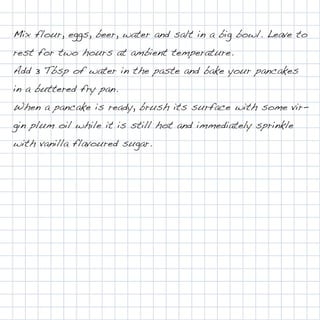 Mix flour, eggs, beer, water and salt in a big bowl. Leave to
rest for two hours at ambient temperature.
Add 3 Tbsp of water in the paste and bake your pancakes
in a buttered fry pan.
When a pancake is ready, brush its surface with some vir-
gin plum oil while it is still hot and immediately sprinkle
with vanilla flavoured sugar.